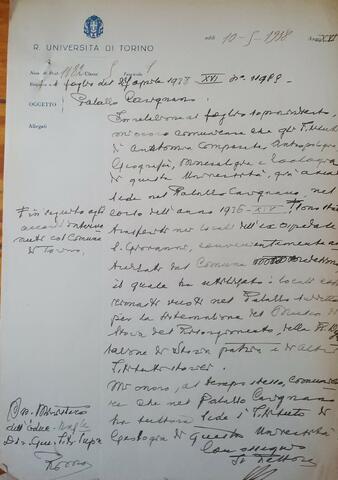 R. UNIVERSITÀ DI TORINO
addì 10-5-1938 Anno XVI
Num. di Prot. 1182 Classe 9 Fascicolo
foglio del aprile 1938 XVI n.° 11989
OGGETTO Palazzo Carignano
Allegati
In relazione al foglio sopraindicato,
mi onoro comunicare che gli Istituti
di Anatomia Comparata, Antropologia,
Geografia, Mineralogia e Zoologia
di questa Università, già aventi
sede nel Palazzo Carignano, nel
corso dell'anno 1936-XIV furono
trasferiti nei locali dell'ex Ospedale
S. Giovanni, convenientemente
dal Comune
il quale ha utilizzato i locali così
nel Palazzo
per la sistemazione del
Storia del Risorgimento, della R.
di Storia patria e di altri
Istituti storici.
Mi onoro, al tempo stesso, comunica-
re che nel Palazzo Carignano
ha tuttora sede l'Istituto di
Geologia di questa Università
Con ossequi
Il Rettore
in seguito agli
accordi
col Comune
di Torino
On. Ministero
dell'Educ. Naz.le
Dir. Gen. Istr. Sup.
Roma